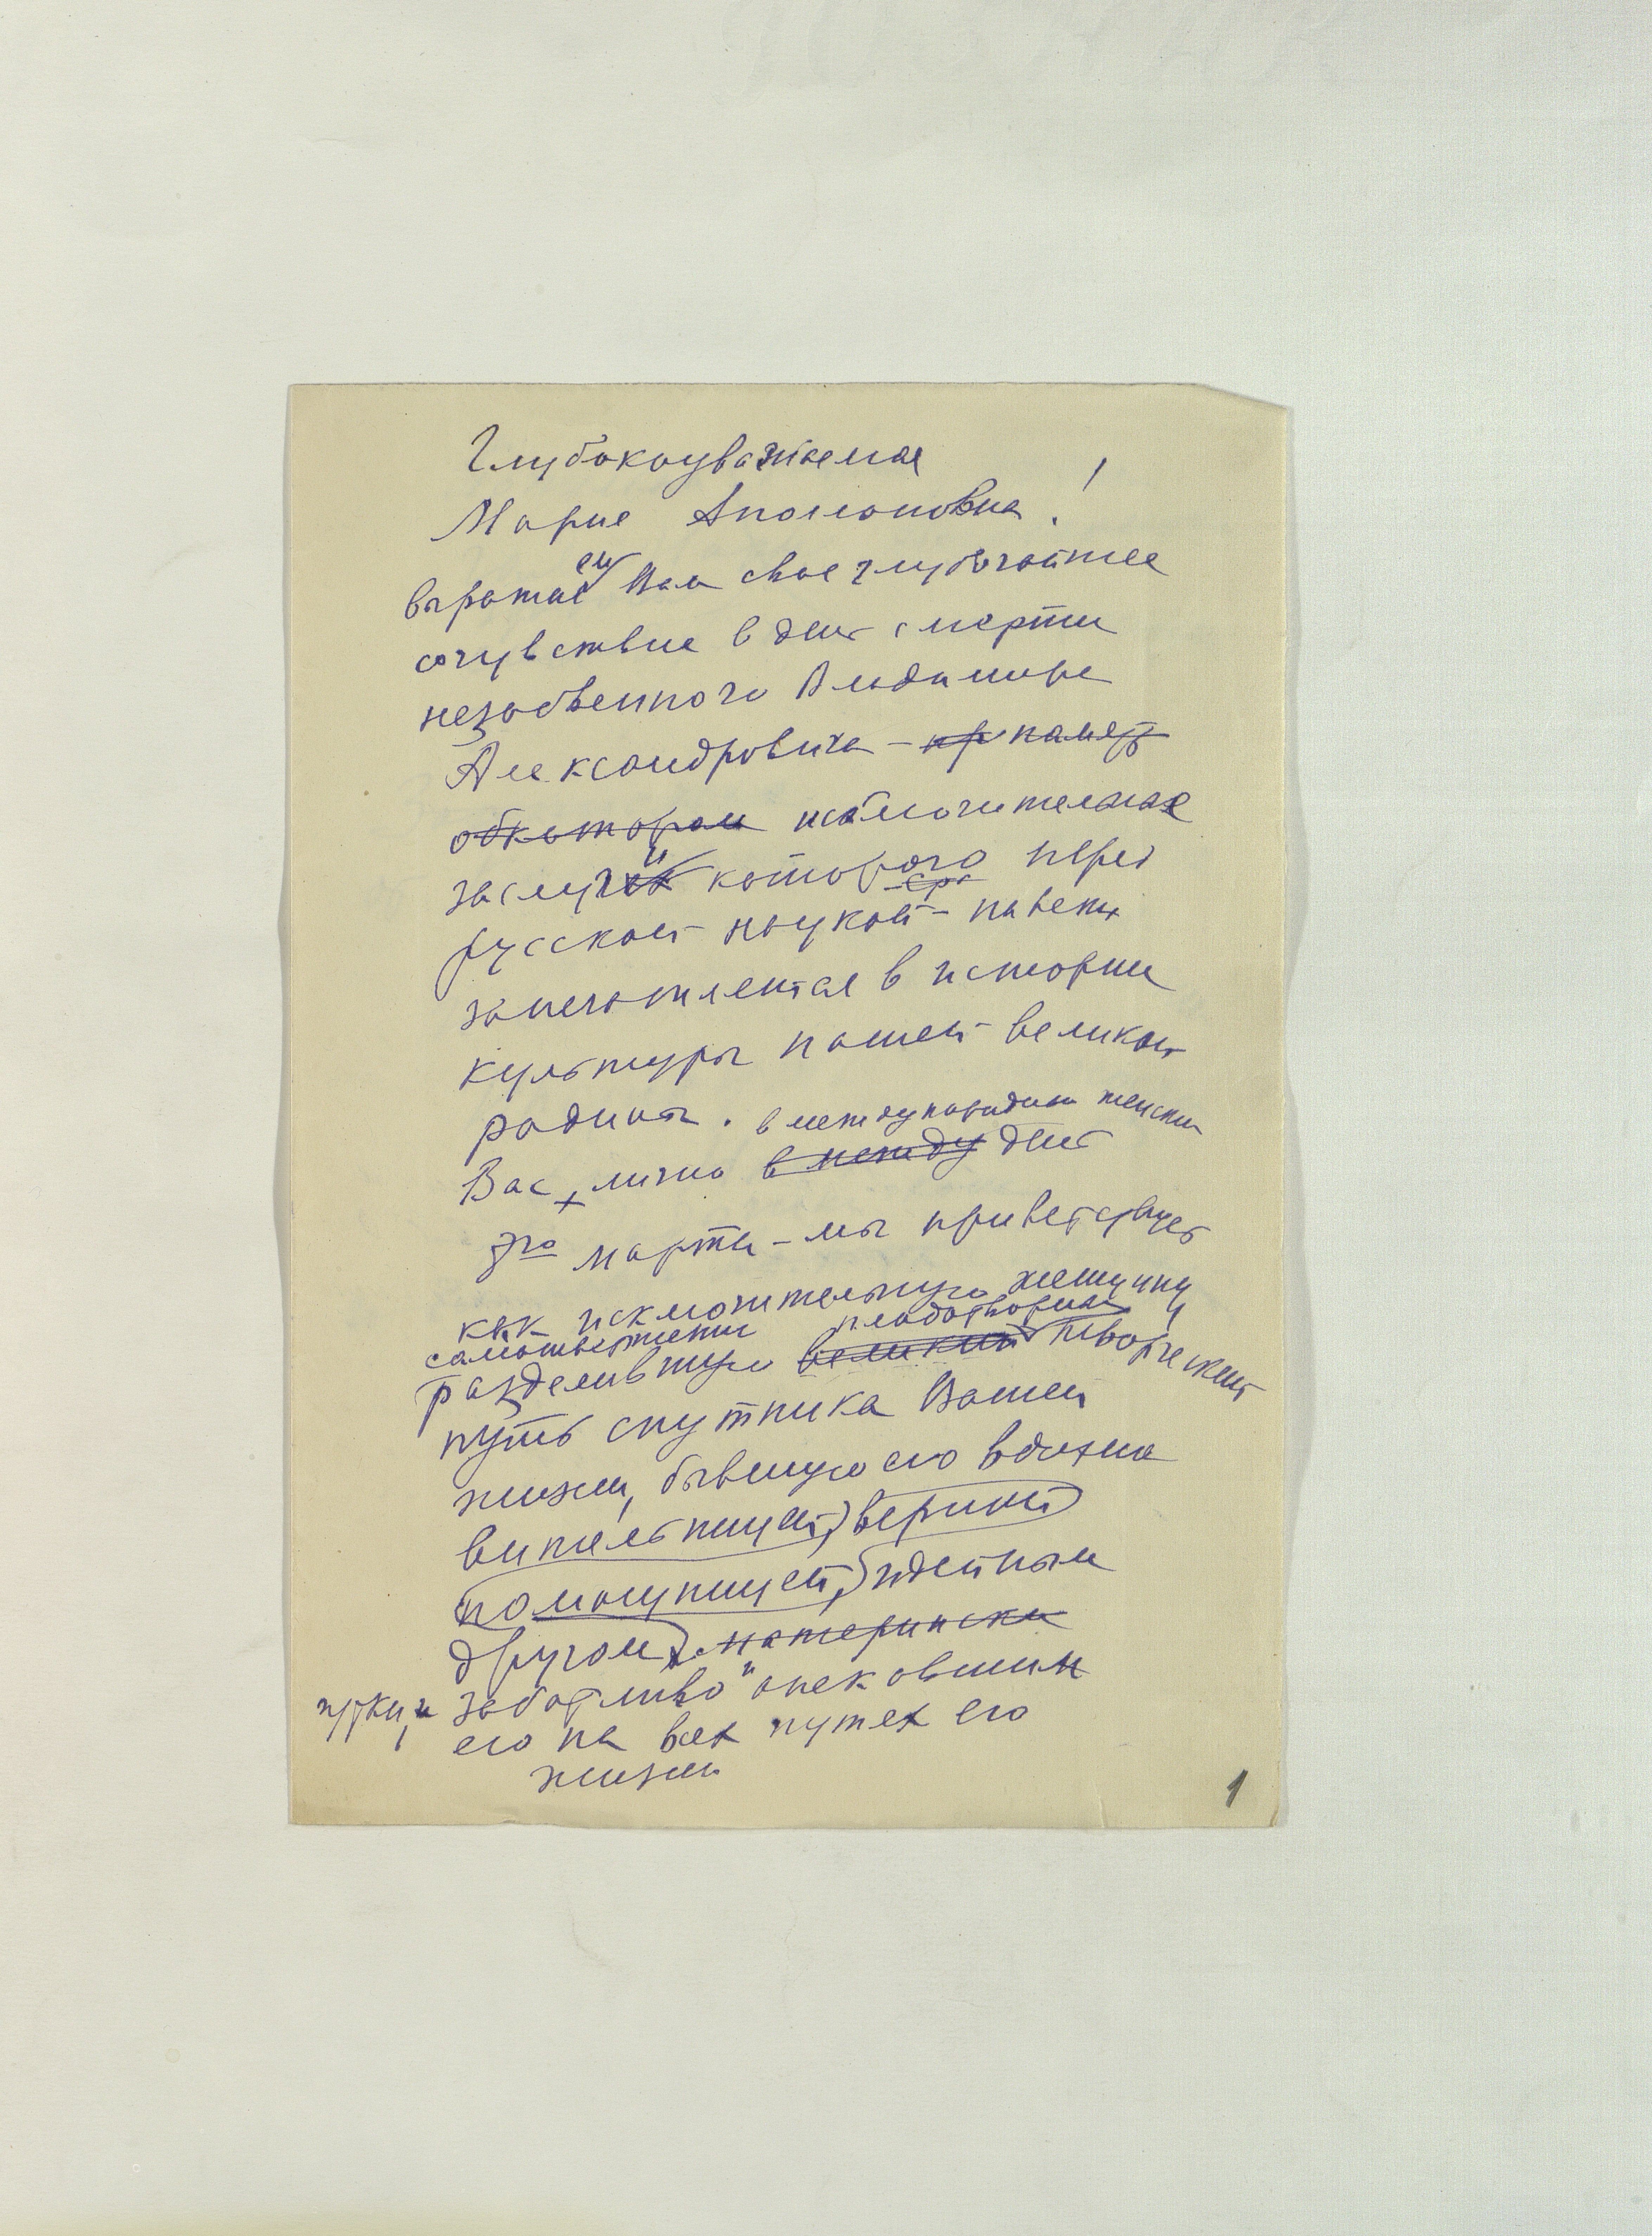 Глубокоуважаемая
Мария Аполлоновна!
выражаем Вам свое глубочайшее
сочувствие в день смерти
незабвенного Владимира
Александровича – пр память
о котором исключительные
заслуги которого перед
русской наукой – навеки
запечатлеются в истории
культуры нашей великой
родины. в международный женский
Вас, лично в между день
8го марта – мы приветствуем
как исключительную женщину
самоотверженно плодотворный
разделившую великий творческий
путь спутника Вашей
жизни, бывшую его вдохно
вительницей, верной
помощницей, идейным
другом, матерински
чутко, и заботливо опекавшим
его на всех путях его
жизни
1